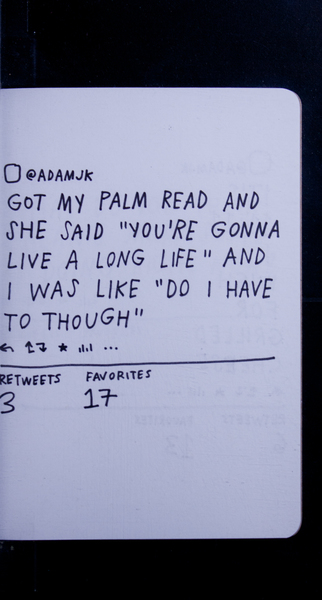 @ADAMJK
GOT MY PALM READ AND
SHE SAID "YOU'RE GONNA
LIVE A LONG LIFE" AND
I WAS LIKE "DO I HAVE
TO THOUGH"
...
RETWEETS FAVORITES
3 17